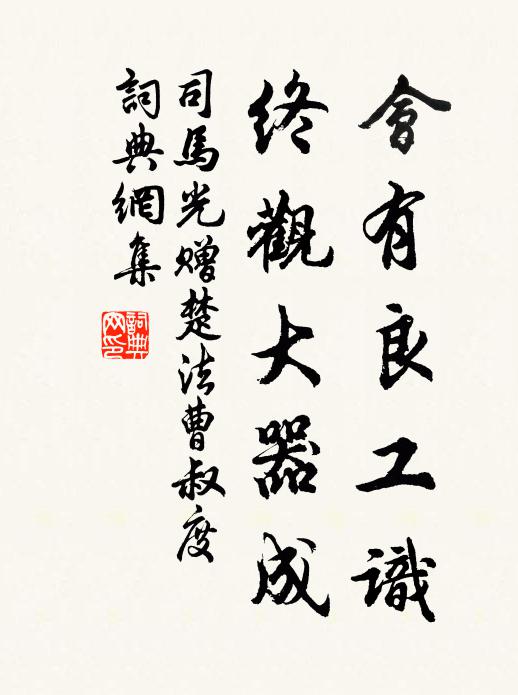 會有良工識
終觀大器成
司馬光贈楚法曹叔度
詞典網集
詞典網印